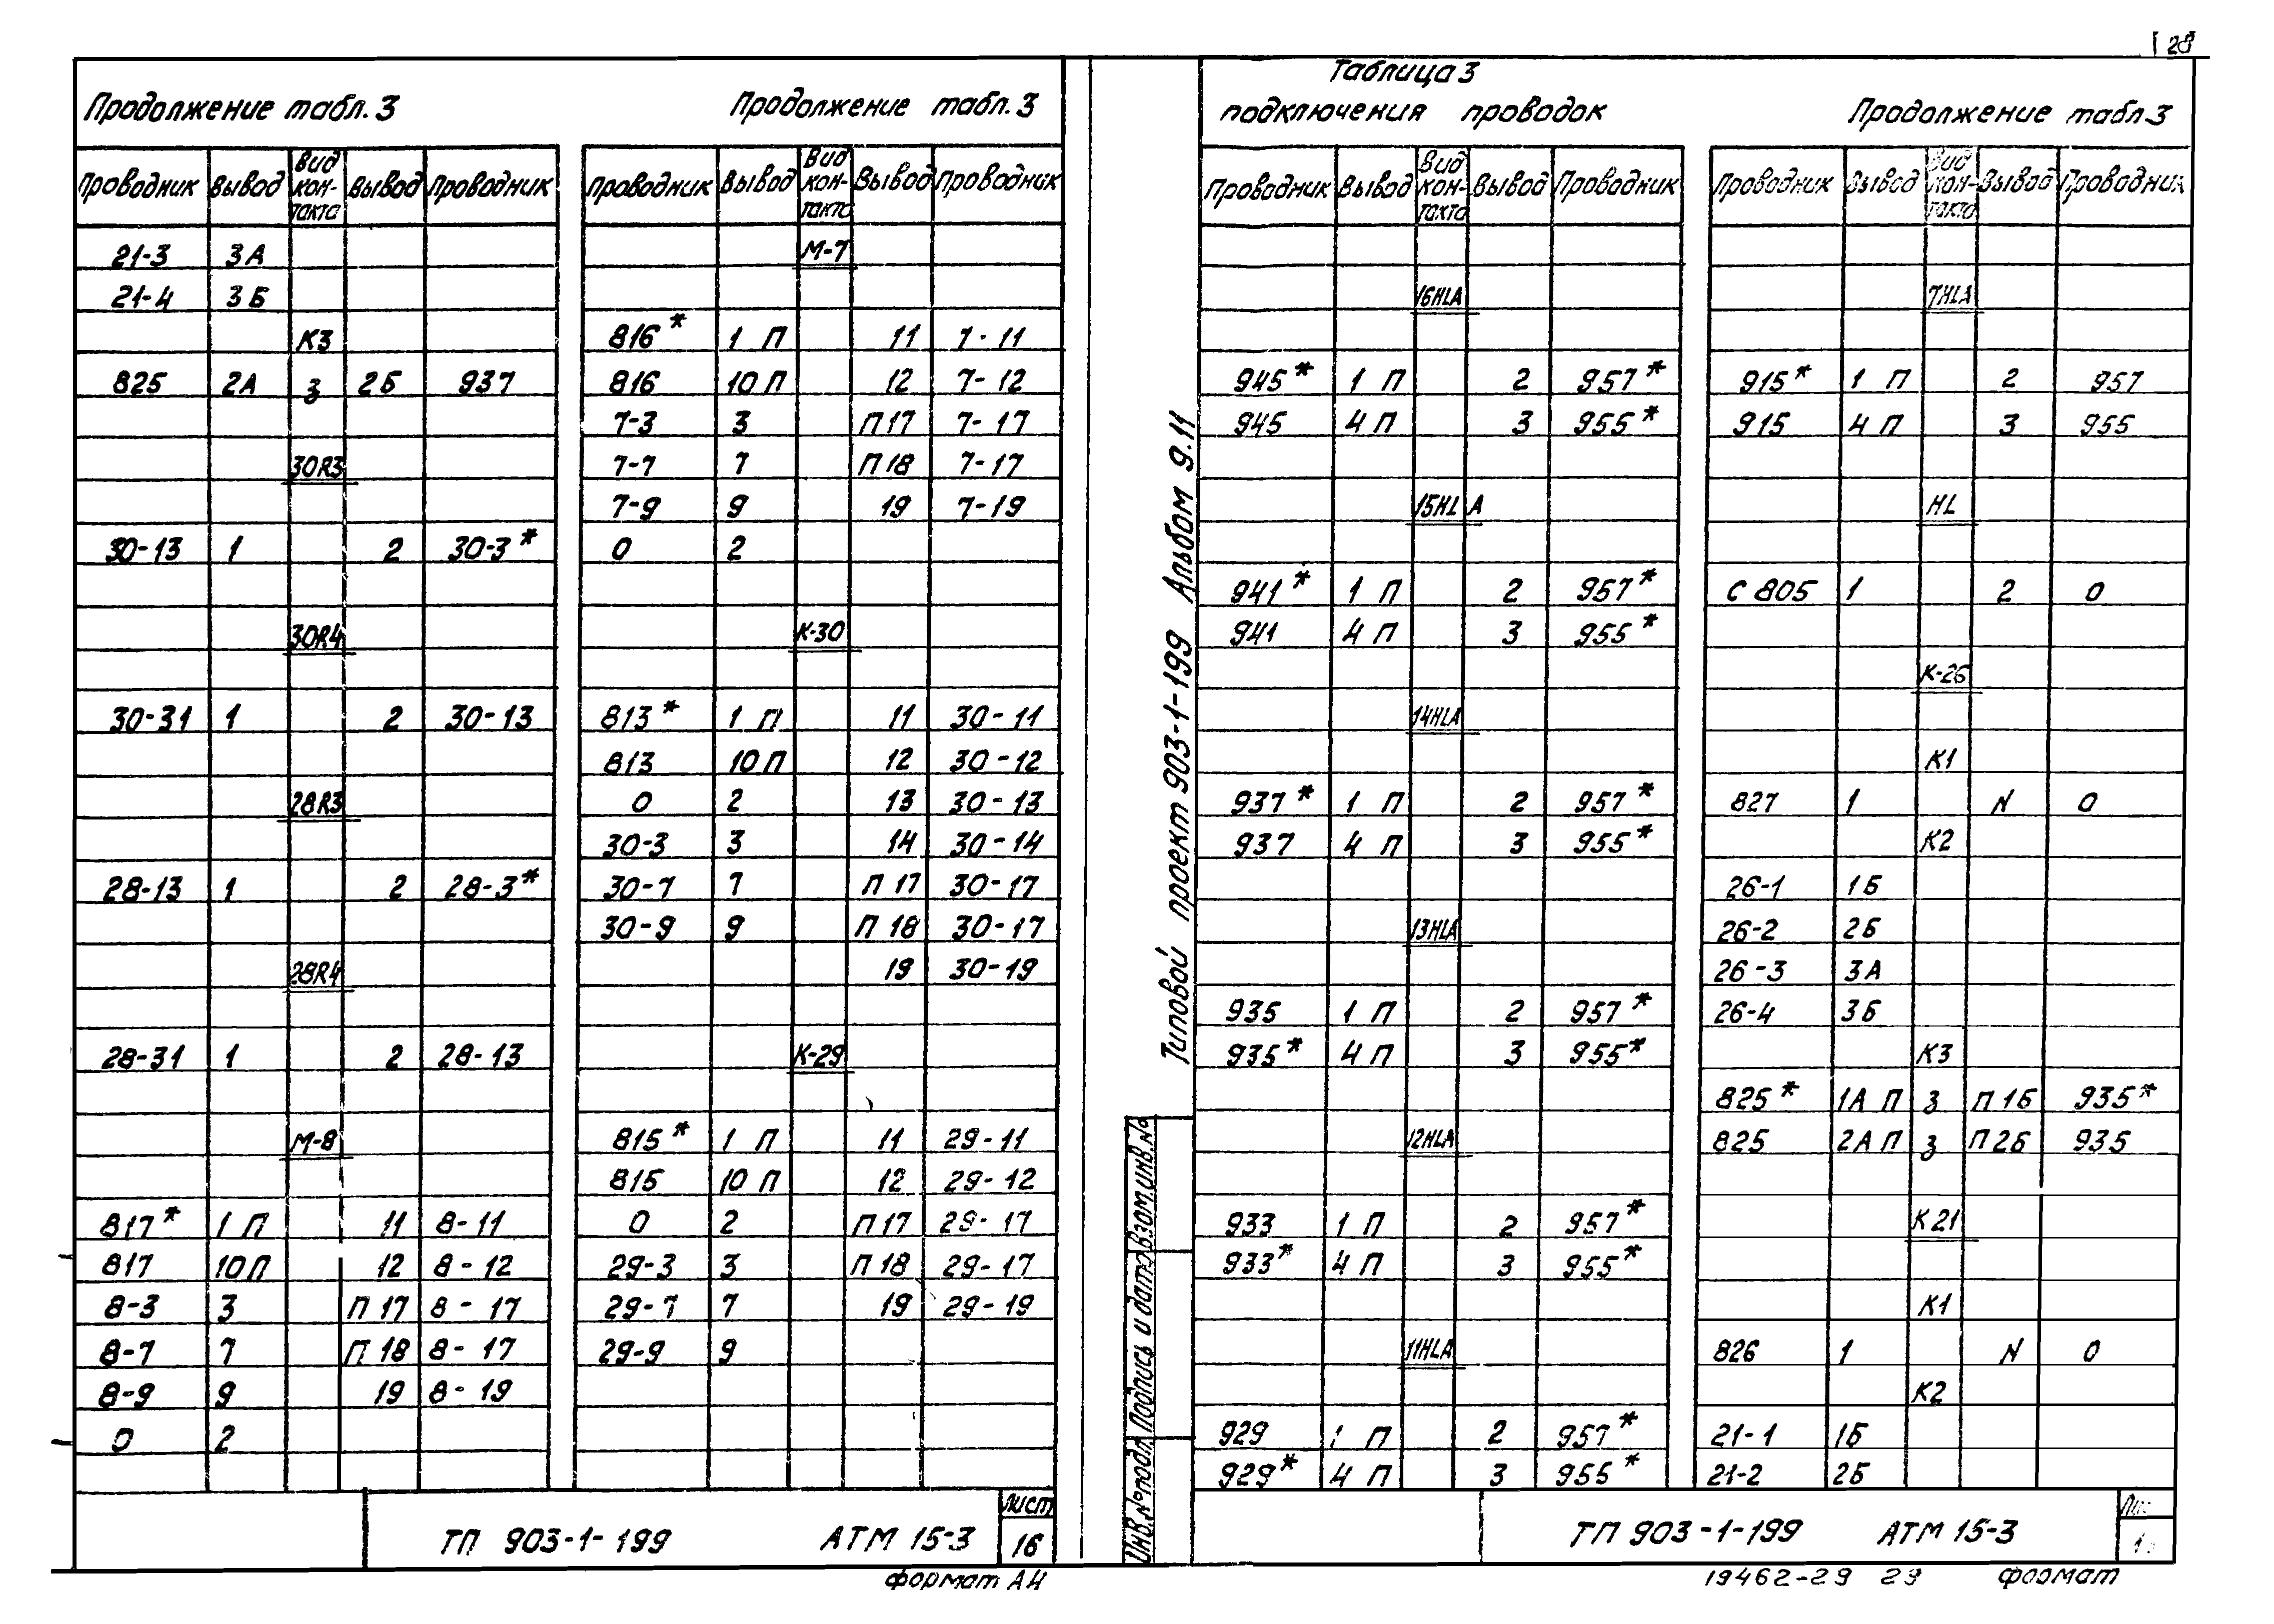 28
Продолжение табл. 3
Проводник Вывод Вид кон-такта Вывод Проводник
21-3 3А
21-4 3Б
К3
825 2А З 2Б 937
30R3
30-13 1 2 30-3*
30R4
30-31 1 2 30-13
28R3
28-13 1 2 28-3*
28R4
28-31 1 2 28-13
М-8
817* 1 П 11 8-11
817 10 П 12 8-12
8-3 3 П 17 8-17
8-7 7 П 18 8-17
8-9 9 19 8-19
0 2
Продолжение табл. 3
Проводник Вывод Вид кон-такта Вывод Проводник
М-7
816* 1 П 11 7-11
816 10 П 12 7-12
7-3 3 П 17 7-17
7-7 7 П 18 7-17
7-9 9 19 7-19
0 2
К-30
813* 1 П 11 30-11
813 10 П 12 30-12
0 2 13 30-13
30-3 3 14 30-14
30-7 7 П 17 30-17
30-9 9 П 18 30-17
19 30-19
К-29
815* 1 П 11 29-11
815 10 П 12 29-12
0 2 П 17 29-17
29-3 3 П 18 29-17
29-7 7 19 29-19
29-9 9
ТП 903-1-199 АТМ 15-3
Лист
16
формат А4
Типовой проект 903-1-199 Альбом 9.11
Инв.№подл. Подпись и дата Взам.инв.№
Таблица 3
подключения проводок
Проводник Вывод Вид кон-такта Вывод Проводник
16HLA
945* 1 П 2 957*
945 4 П 3 955*
15HLA
941* 1 П 2 957*
941 4 П 3 955*
14HLA
937* 1 П 2 957*
937 4 П 3 955*
13HLA
935 1 П 2 957*
935* 4 П 3 955*
12HLA
933 1 П 2 957*
933* 4 П 3 955*
11HLA
929 1 П 2 957*
929* 4 П 3 955*
Продолжение табл. 3
Проводник Вывод Вид кон-такта Вывод Проводник
7HLA
915* 1 П 2 957
915 4 П 3 955
HL
С 805 1 2 0
К-26
К1
827 1 N 0
К2
26-1 1Б
26-2 2Б
26-3 3А
26-4 3Б
К3
825* 1А П З П 1Б 935*
825 2А П З П 2Б 935
К21
К1
826 1 N 0
К2
21-1 1Б
21-2 2Б
ТП 903-1-199 АТМ 15-3
19462-29 29 формат